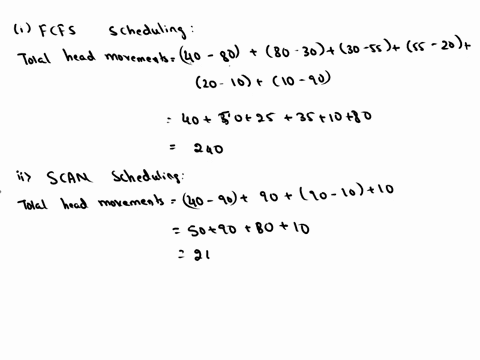 (i) FCFS Scheduling:
Total head movements = (40 - 80) + (80 - 30) + (30 - 55) + (55 - 20) +
(20 - 10) + (10 - 90)
= 40 + 50 + 25 + 35 + 10 + 80
= 240
ii) SCAN Scheduling:
Total head movements = (40 - 90) + 90 + (90 - 10) + 10
= 50 + 90 + 80 + 10
= 21